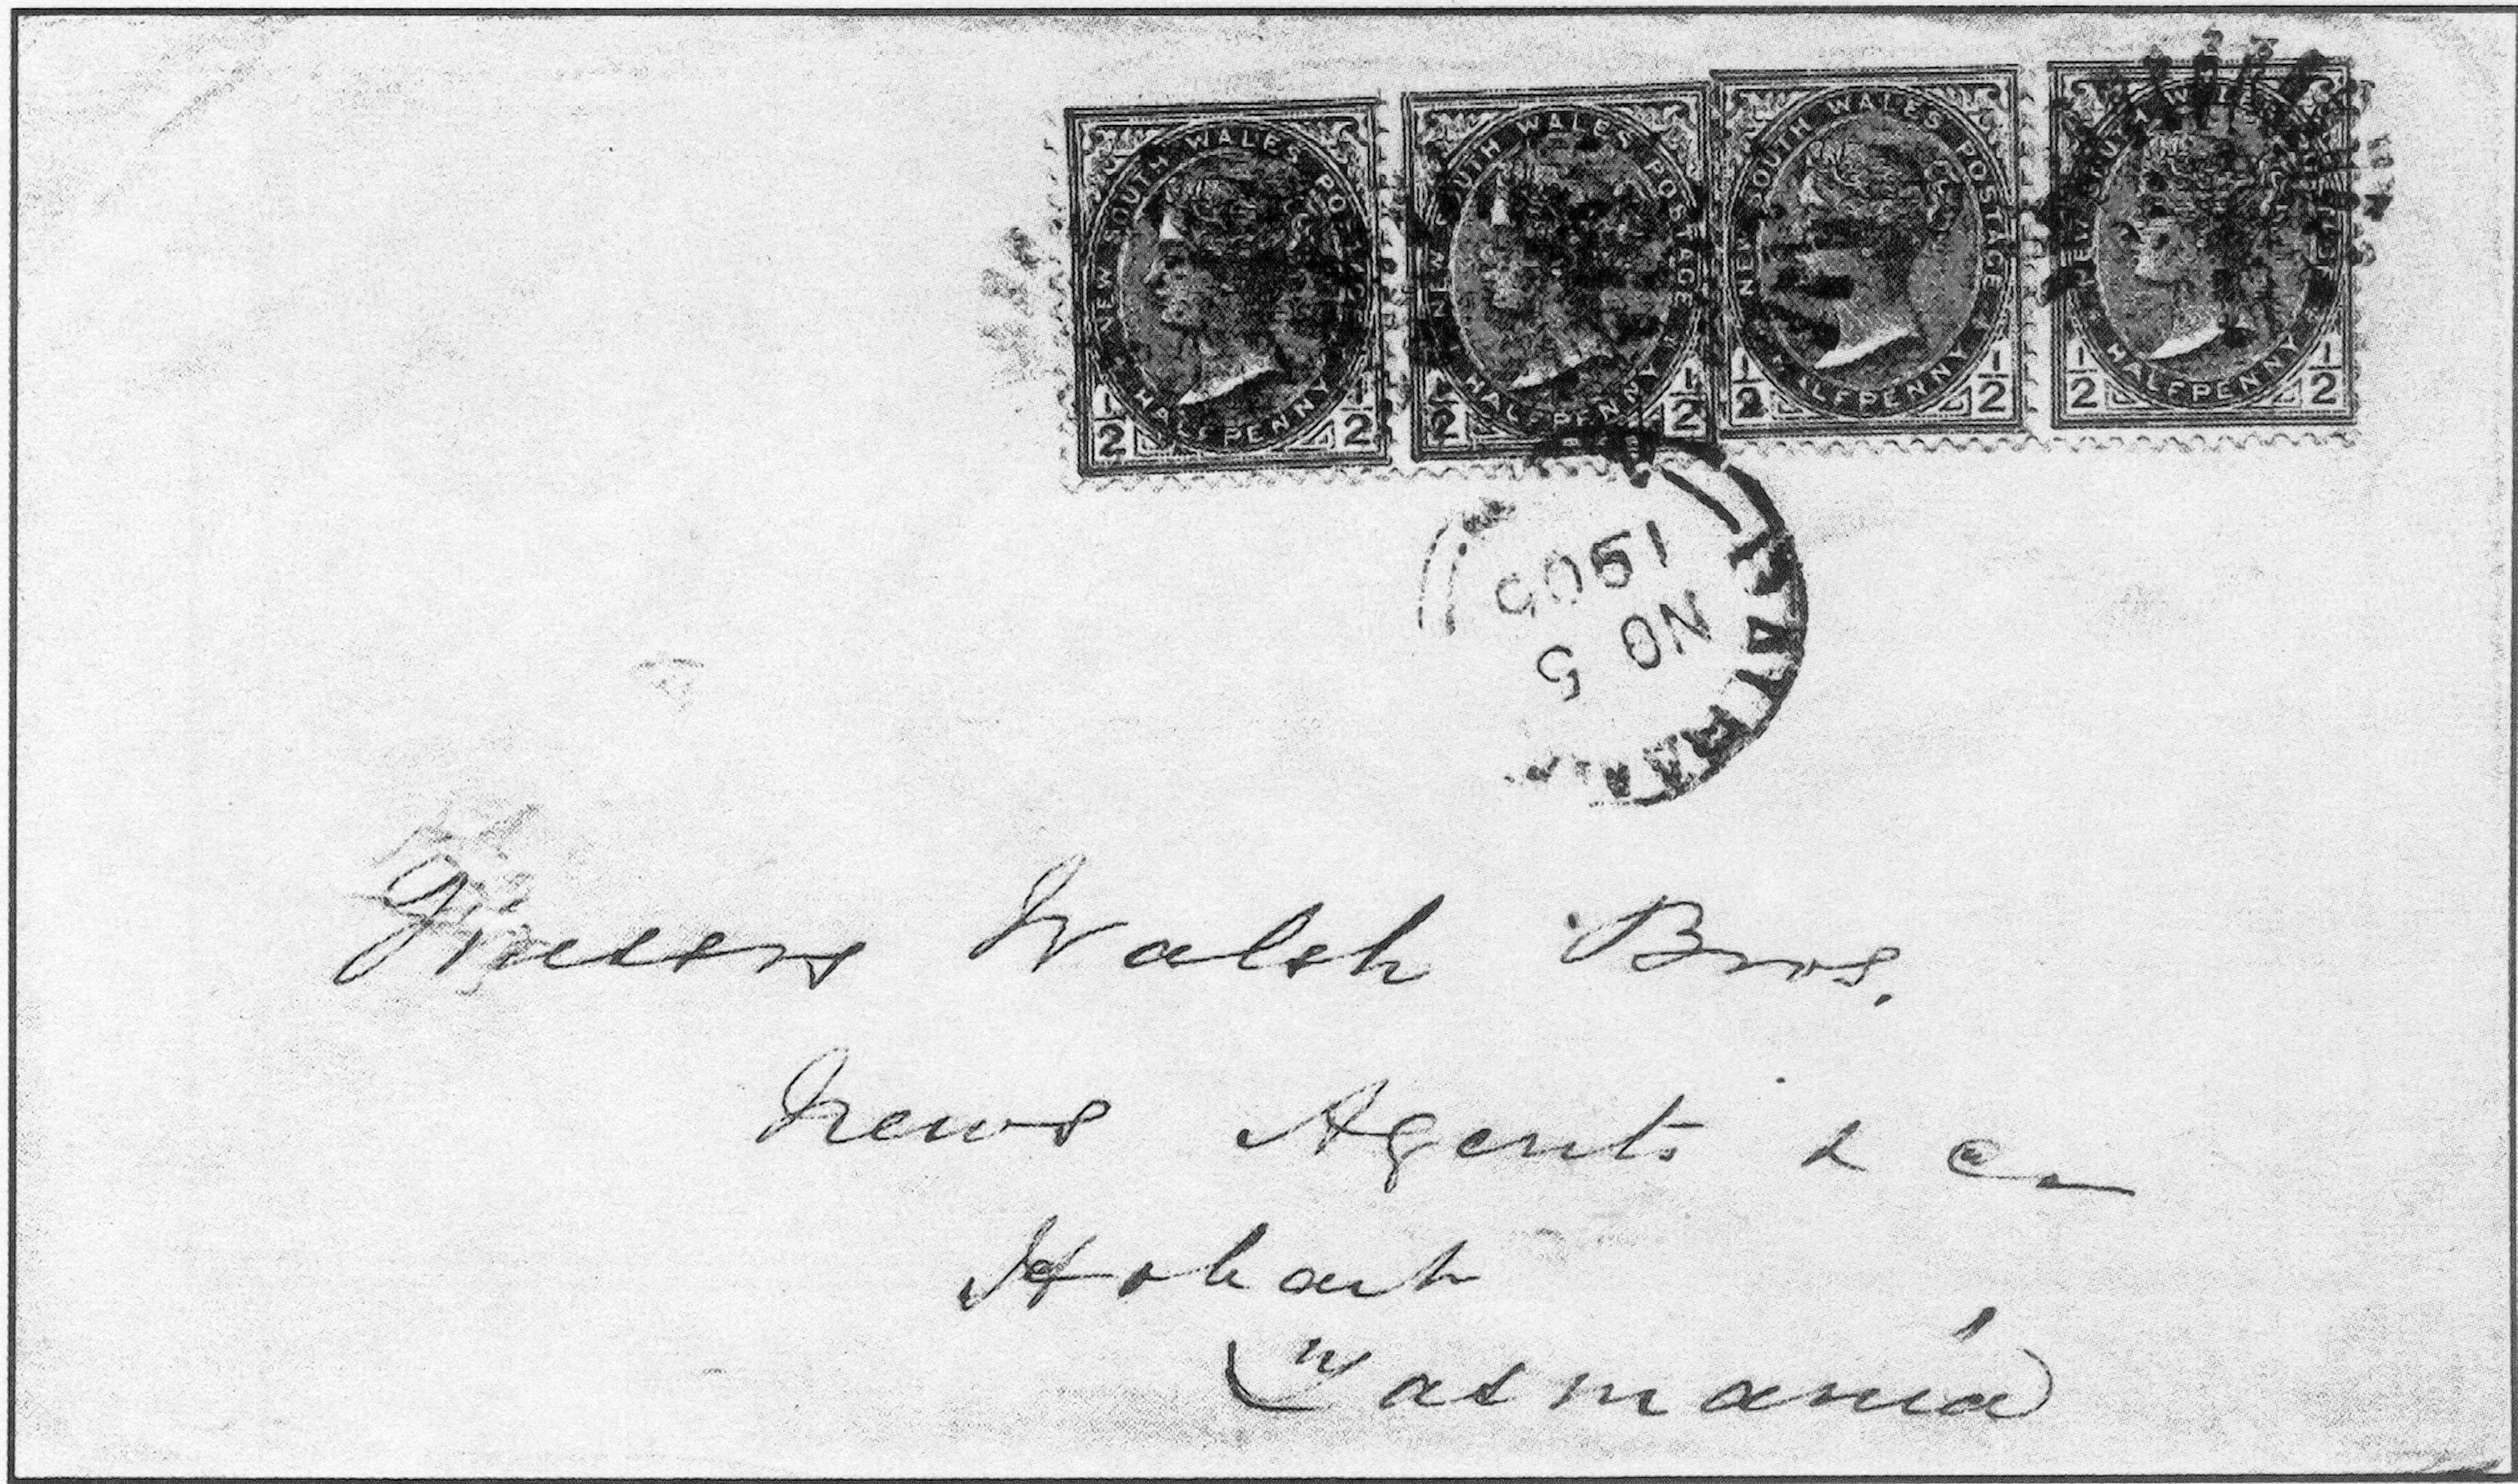 NEW SOUTH WALES POSTAGE
HALFPENNY
1/2 1/2
NEW SOUTH WALES POSTAGE
HALFPENNY
1/2 1/2
NEW SOUTH WALES POSTAGE
HALFPENNY
1/2 1/2
NEW SOUTH WALES POSTAGE
HALFPENNY
1/2 1/2
NO 5
1905
Messrs Walsh Bros.
News Agents & c
Hobart
Tasmania